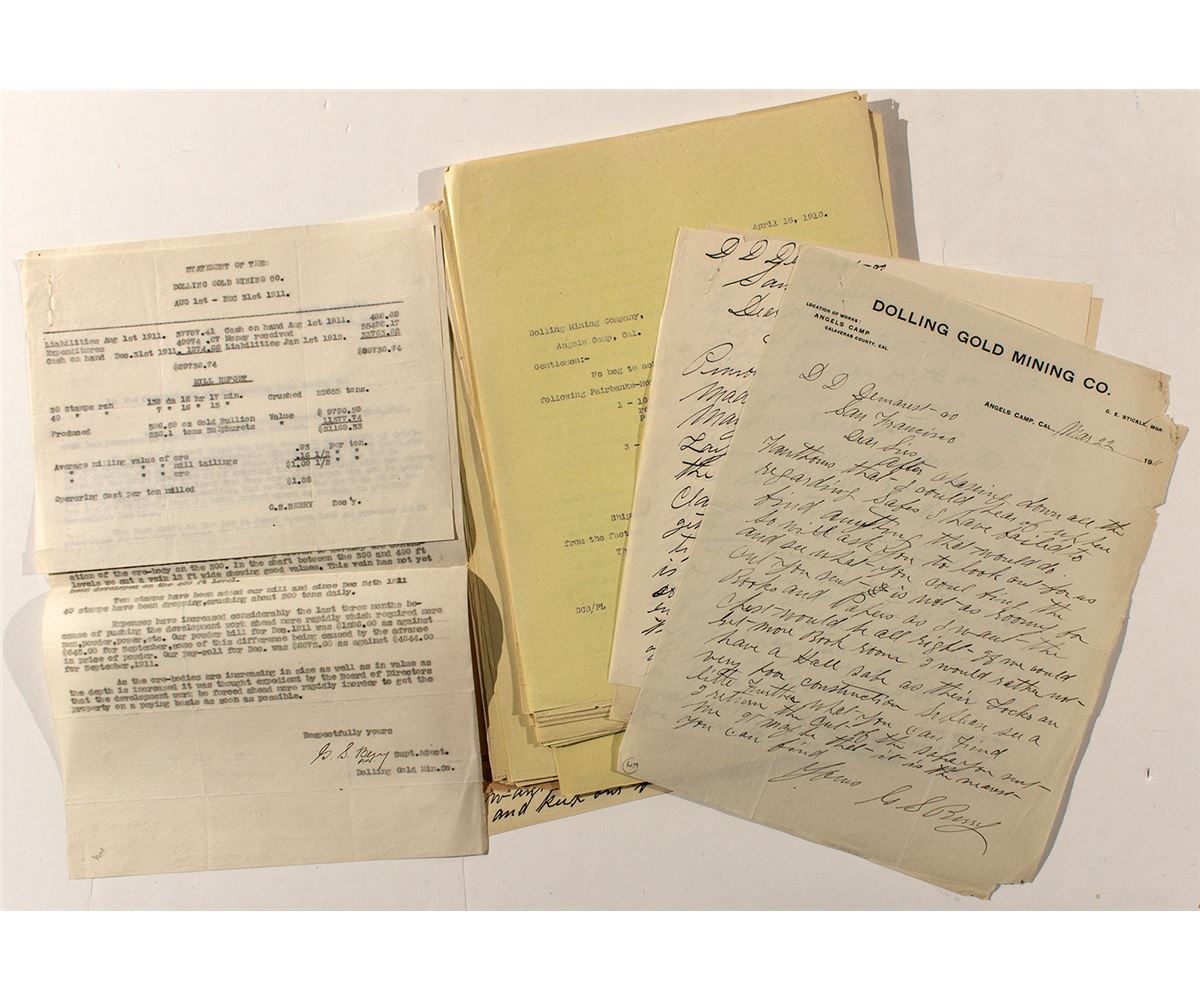 STATEMENT OF THE
DOLLING GOLD MINING CO.
AUG 1st - DEC 31st 1911.
Liabilities Aug 1st 1911. 37787.41 Cash on hand Aug 1st 1911. 486.69
Expenditures 49974.67 Money received 55486.17
Cash on hand Dec.31st 1911. 1974.66 Liabilities Jan 1st 1912.
$89736.74 $89736.74
MILL REPORT
30 Stamps ran 132 da 16 hr 17 min. Crushed 22655 tons.
40 " " 7 " 16 " 15 "
Produced 596.59 oz Gold Bullion Value $ 9790.59
238.1 tons Sulphurets " 11377.74
$21168.33
Average milling value of ore .93 per ton.
" " " mill tailings .16 1/2 " "
" " " ore $1.09 1/2 " "
Operating Cost per ton milled $1.86
G.S.BERRY Sec'y.
ation of the ore-body on the 300. In the shaft between the 300 and 400 ft
levels we cut a vein 12 ft wide showing good values. This vein has not yet
been developed on the 400 ft level.
Ten stamps have been added our mill and since Dec 24th 1911
40 stamps have been dropping, crushing about 200 tons daily.
Expenses have increased considerably the last three months be-
cause of pushing the development work ahead more rapidly which required more
men, powder, power, etc. Our powder bill for Dec. 1911 was as against
$645.00 for September, some of this difference being caused by the advance
in price of powder. Our pay-roll for Dec. was $6672.00 as against $4844.00
for September, 1911.
As the ore-bodies are increasing in size as well as in value as
the depth is increased it was thought expedient by the Board of Directors
that the development work be forced ahead more rapidly inorder to get the
property on a paying basis as soon as possible.
Respectfully yours
G. S. Berry Supt.&Sect.
Dolling Gold Min.Co.
April 15, 1910.
Dolling Mining Company,
Angels Camp, Cal.
Gentlemen:-
We beg to
following Fairbanks-
1 - 10
3 -
Ship
from the fact
Th
DCD/FL
and
D D De
San
Dear
the
is
DOLLING GOLD MINING CO.
LOCATION OF WORKS:
ANGELS CAMP
CALAVERAS COUNTY, CAL.
G. E. STICKLE, MGR.
ANGELS CAMP, CAL., Mar 22 191
D D Demarest Co
San Francisco
Dear Sirs
After chasing down all the
Fanthoms that I could hear of
regarding Safes I have failed to
find anything that would do
so will ask you to look out for us
and see what you can find the
Cut you sent is not as roomy for
Books and Papers as I want the
Chest would be all right if we could
get more Book room I would rather not
have a Hall safe as their Locks are
very poor construction so please see a
little further what you can find
I return the Cut of the safe you
me it maybe that it is the nearest
you can find
Yours G S Berry